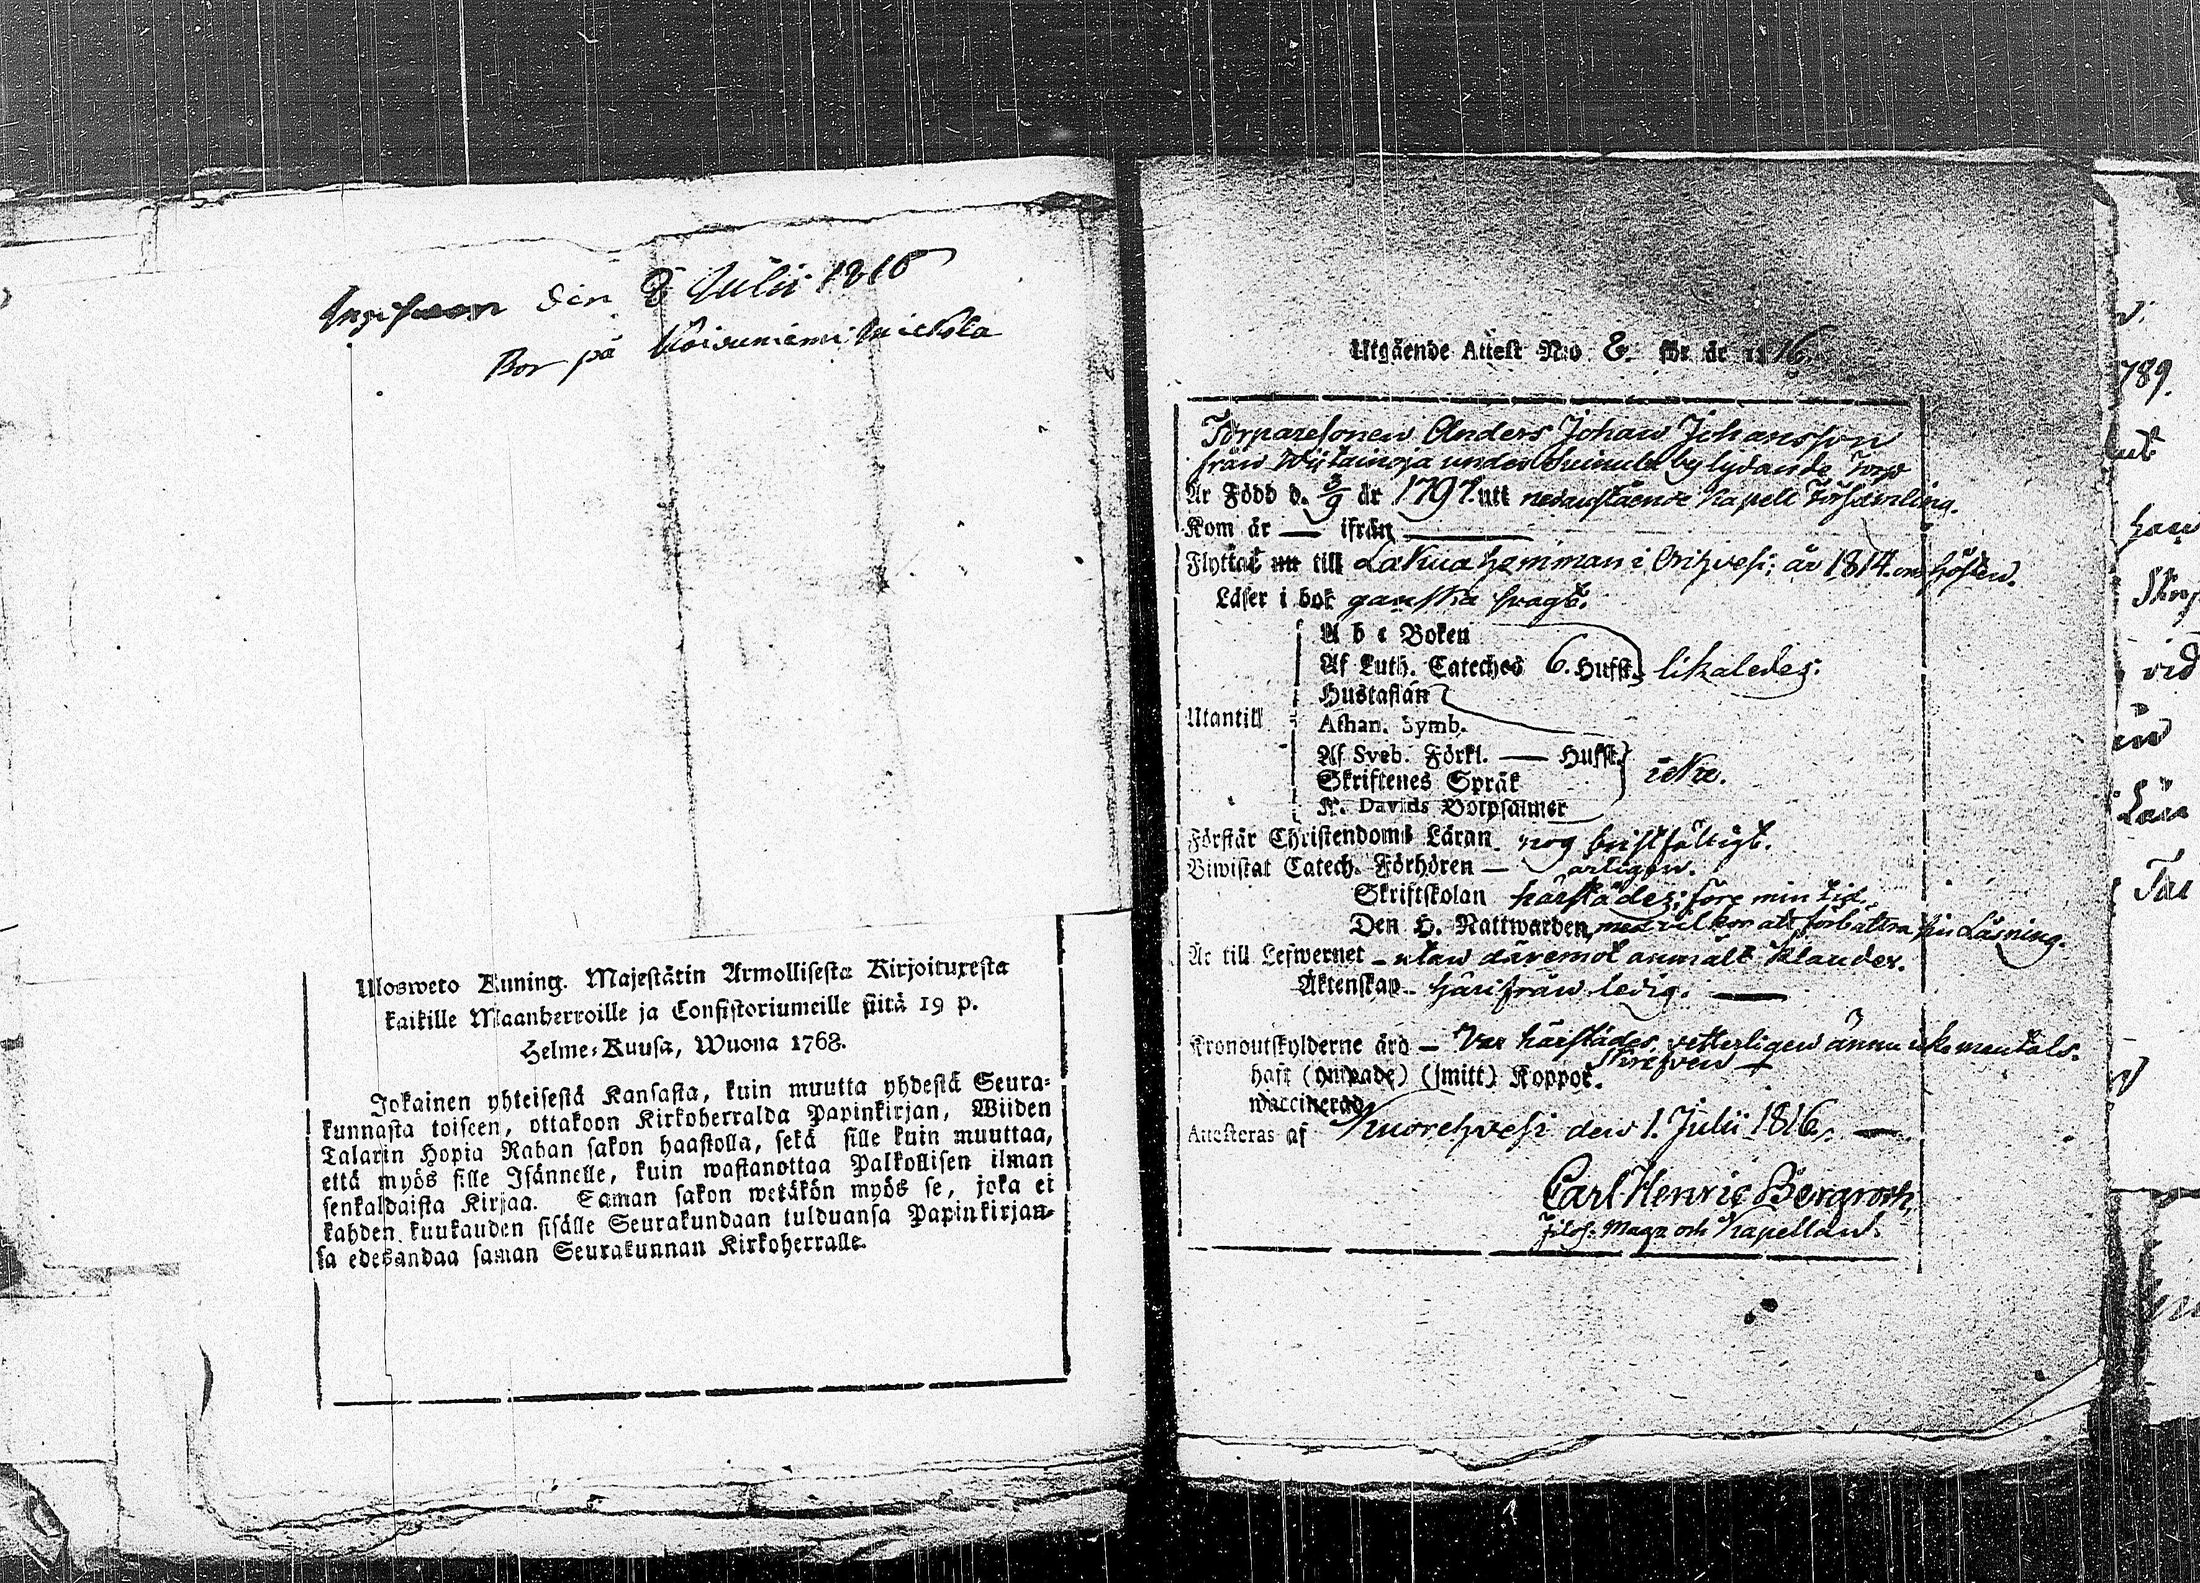 Ingifwen den 8 Julii 1816
Bor på Koivuniemi Mickola
Ulosweto Kuning. Majestätin Armollisesta Kirjoituxesta
kaikille Maanherroille ja Consistoriumeille siitä 19 p.
Helme-Kuusa, Wuona 1768.
Jokainen yhteisestä Kansasta, kuin muutta yhdestä Seura-
kunnasta toiseen, ottakoon Kirkoherralda Papinkirjan, Wiiden
Talarin Hopia Rahan sakon haastolla, sekä sille kuin muuttaa,
että myös sille Isännelle, kuin wastanottaa Palkollisen ilman
senkaldaista Kirjaa. Saman sakon wetäkön myös se, joka ei
kahden kuukauden sisälle Seurakundaan tulduansa Papinkirjan-
sa edesandaa saman Seurakunnan Kirkoherralle.
Utgående Attest N:o 8. för år 1816.
Torparesonen Anders Johan Johansson
från Wiitainoja under by lydande Torp
Är Född d. 3/9 år 1797. uti nedanstående Kapell Församling.
Kom år — ifrån —
Flyttat nu till Lakua hemman i Orihvesi; år 1814. om hösten.
Läser i bok ganska svagt.
A b c Boken
Af Luth. Cateches 6. Hufst. likaledes:
Hustaflan
Utantill
Athan. Symb.
Af Sveb. Förkl. — Hufst.
Skriftenes Språk icke.
K. Davids Botpsalmer
Förstår Christendoms Läran nog bristfälligt.
Biwistat Catech. Förhören — årligen.
Skriftskolan härstädes; före min tid.
Den H. Nattwarden, med vilkor att förbättra sin Läsning.
Är till Lefwernet — utan däremot anmält klander.
Äktenskap — härifrån ledig. —
Kronoutskylderne ärd — Var härstädes vetterligen ännu icke mantals-
skrefven —
haft (ympade) (smitt) Koppor.
waccinerad
Attesteras af Kuorehvesi den 1. Julii 1816. —
Carl Henric Bergroth,
Filos. Mag:r och Kapellan.
789.
vid